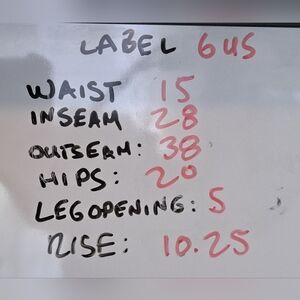 LABEL 6 US
WAIST 15
INSEAM 28
OUTSEAM: 38
HIPS: 20
LEG OPENING: 5
RISE: 10.25